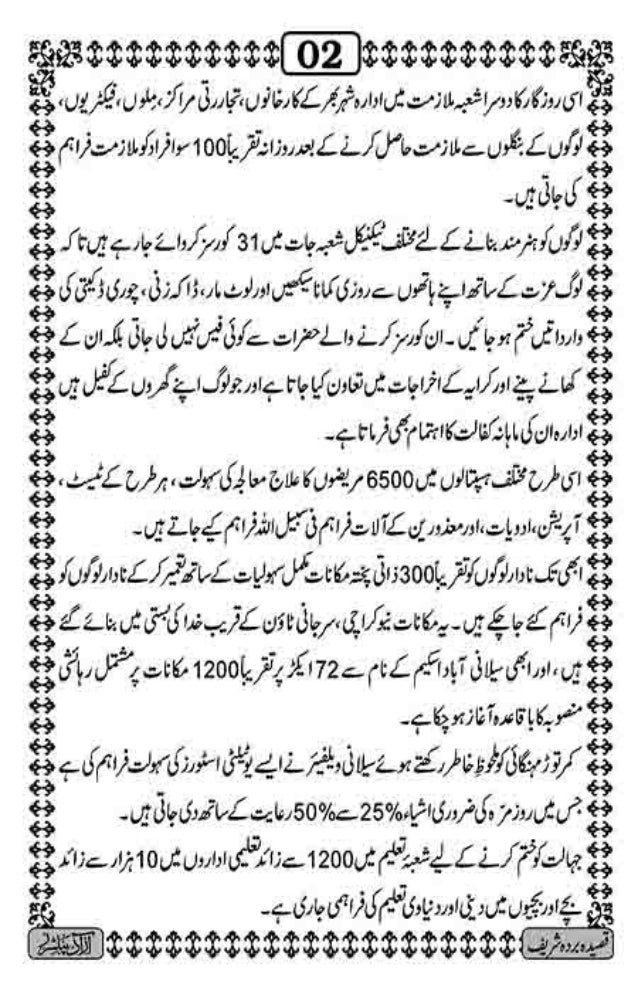 02
اسی روزگار کا دوسرا شعبہ ملازمت میں ادارہ شہر بھر کے کارخانوں، تجاررتی مراکز، مِلوں، فیکٹریوں،
لوگوں کے بنگلوں سے ملازمت حاصل کرنے کے بعد روزانہ تقریباً 100 سو افراد کو ملازمت فراہم
کی جاتی ہیں۔
لوگوں کو ہنر مند بنانے کے لئے مختلف ٹیکنیکل شعبہ جات میں 31 کورسز کروائے جارہے ہیں تا کہ
لوگ عزت کے ساتھ اپنے ہاتھوں سے روزی کمانا سیکھیں اور لوٹ مار، ڈاکہ زنی، چوری ڈکیتی کی
وارداتیں ختم ہو جائیں۔ ان کورسز کرنے والے حضرات سے کوئی فیس نہیں لی جاتی بلکہ ان کے
کھانے پینے اور کرایہ کے اخراجات میں تعاون کیا جاتا ہے اور جو لوگ اپنے گھروں کے کفیل ہیں
ادارہ ان کی ماہانہ کفالت کا اہتمام بھی فرماتا ہے۔
اسی طرح مختلف ہسپتالوں میں 6500 مریضوں کا علاج معالجہ کی سہولت، ہر طرح کے ٹیسٹ،
آپریشن، ادویات، اور معذورین کے آلات فراہم فی سبیل اللہ فراہم کیے جاتے ہیں۔
ابھی تک نادار لوگوں کو تقریباً 300 ذاتی پختہ مکانات مکمل سہولیات کے ساتھ تعمیر کرکے نادار لوگوں کو
فراہم کئے جاچکے ہیں۔ یہ مکانات نیو کراچی، سرجانی ٹاؤن کے قریب خدا کی بستی میں بنائے گئے
ہیں، اور ابھی سیلانی آباد اسکیم کے نام سے 72 ایکڑ پر تقریباً 1200 مکانات پر مشتمل رہائشی
منصوبہ کا باقاعدہ آغاز ہو چکا ہے۔
کمر توڑ مہنگائی کو ملحوظِ خاطر رکھتے ہوئے سیلانی ویلفیئر نے ایسے یوٹیلٹی اسٹورز کی سہولت فراہم کی ہے
جس میں روز مرّہ کی ضروری اشیاء 25% سے 50% رعایت کے ساتھ دی جاتی ہیں۔
جہالت کو ختم کرنے کے لیے شعبۂ تعلیم میں 1200 سے زائد تعلیمی اداروں میں 10 ہزار سے زائد
بچے اور بچیوں میں دینی اور دنیاوی تعلیم کی فراہمی جاری ہے۔
قصیدہ بردہ شریف